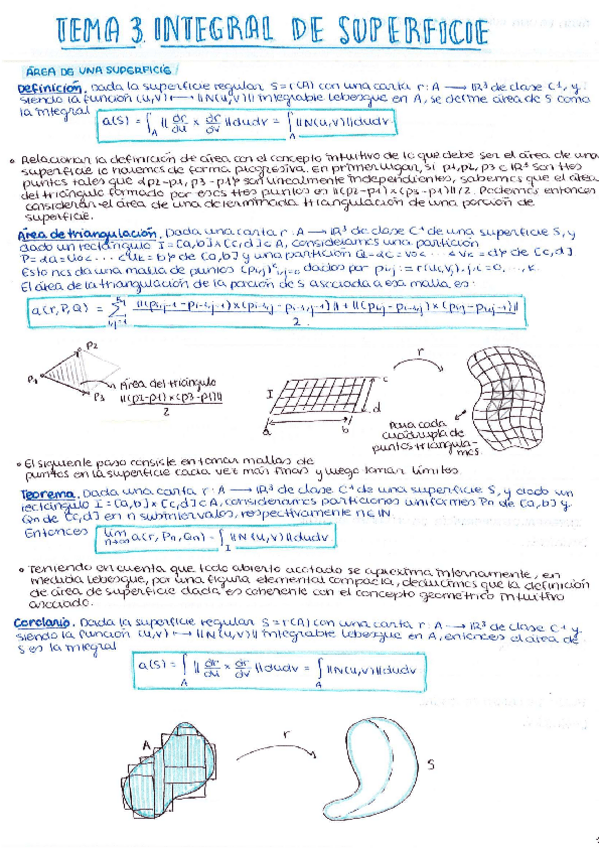 TEMA 3. INTEGRAL DE SUPERFICIE
ÁREA DE UNA SUPERFICIE/
Definición. Dada la superficie regular S=r(A) con una carta r: A → ℝ³ de clase C¹ y
siendo la función (u,v) ↦ ||N(u,v)|| integrable Lebesgue en A, se define área de S como
la integral
a(S) = ∫_A || dr/du × dr/dv || dudv = ∫_A ||N(u,v)|| dudv
• Relacionar la definición de área con el concepto intuitivo de lo que debe ser el área de una
superficie lo hacemos de forma progresiva. En primer lugar, si p1, p2, p3 ∈ ℝ³ son tres
puntos tales que {p2-p1, p3-p1} son linealmente independientes, sabemos que el área
del triángulo formado por esos tres puntos es ||(p2-p1)×(p3-p1)||/2. Podemos entonces
considerar el área de una determinada triangulación de una porción de
superficie.
Área de triangulación. Dada una carta r: A → ℝ³ de clase C¹ de una superficie S, y
dado un rectángulo I=[a,b]×[c,d]⊂A, consideramos una partición
P={a=u0<...<uk=b} de [a,b] y una partición Q={c=v0<...<vk=d} de [c,d]
Esto nos da una malla de puntos (pi,j) i,j=0 dados por pi,j := r(ui,vj), i,j=0,...,k.
El área de la triangulación de la porción de S asociada a esa malla es:
a(r,P,Q) = Σ i,j=1 ||(pi,j-1 - pi-1,j-1)×(pi-1,j - pi-1,j-1)|| + ||(pi,j - pi-1,j)×(pi,j - pi,j-1)||
2
p2
p1
p3
Área del triángulo
||(p2-p1)×(p3-p1)||
2
I
a
b
c
d
r
Para cada
cuádrupla de
puntos triangula-
mos
• El siguiente paso consiste en tomar mallas de
puntos en la superficie cada vez más finas y luego tomar límites
Teorema. Dada una carta r: A → ℝ³ de clase C¹ de una superficie S, y dado un
rectángulo I=[a,b]×[c,d]⊂A, consideramos particiones uniformes Pn de [a,b] y
Qn de [c,d] en n subintervalos, respectivamente n∈ℕ.
Entonces lim n→∞ a(r,Pn,Qn) = ∫_I ||N(u,v)|| dudv
• Teniendo en cuenta que todo abierto acotado se aproxima internamente, en
medida Lebesgue, por una figura elemental compacta, deducimos que la definición
de área de superficie dada es coherente con el concepto geométrico intuitivo
asociado.
Corolario. Dada la superficie regular S=r(A) con una carta r: A → ℝ³ de clase C¹ y
siendo la función (u,v) ↦ ||N(u,v)|| integrable Lebesgue en A, entonces el área de
S es la integral
a(S) = ∫_A || dr/du × dr/dv || dudv = ∫_A ||N(u,v)|| dudv
A
r
S